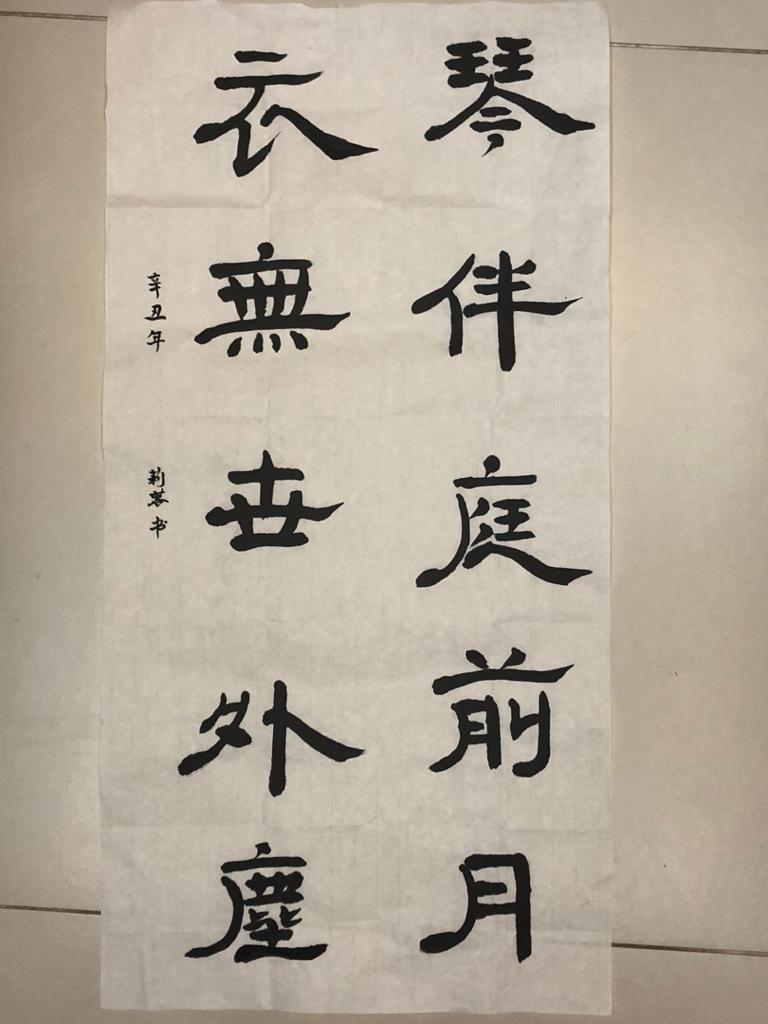 琴伴庭前月
衣無世外塵
辛丑年
莉蓉书